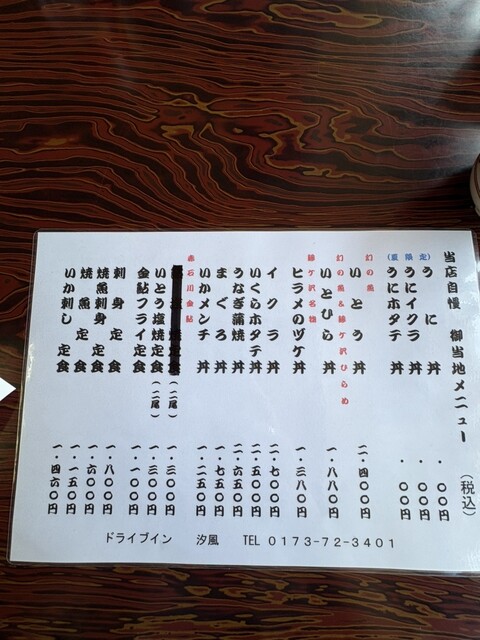 当店自慢 御当地メニュー (税込)
うに丼 ・〇〇円
(夏限定)
うにイクラ丼 ・〇〇円
うにホタテ丼 ・〇〇円
幻の魚
いとう丼 二・四〇〇円
幻の魚&鰺ケ沢ひらめ
いとひら丼 一・八八〇円
鰺ケ沢名物
ヒラメのヅケ丼 一・三八〇円
イクラ丼 二・七〇〇円
いくらホタテ丼 二・五〇〇円
うなぎ蒲焼丼 二・六五〇円
まぐろ丼 一・七五〇円
いかメンチ丼 一・二五〇円
赤石川金鮎
(二尾) 一・三〇〇円
いとう塩焼定食(二尾) 一・三〇〇円
金鮎フライ定食 一・一〇〇円
刺身定食 一・八〇〇円
焼魚刺身定食 一・六〇〇円
焼魚定食 一・一五〇円
いか刺し定食 一・四六〇円
ドライブイン 汐風 TEL 0173-72-3401